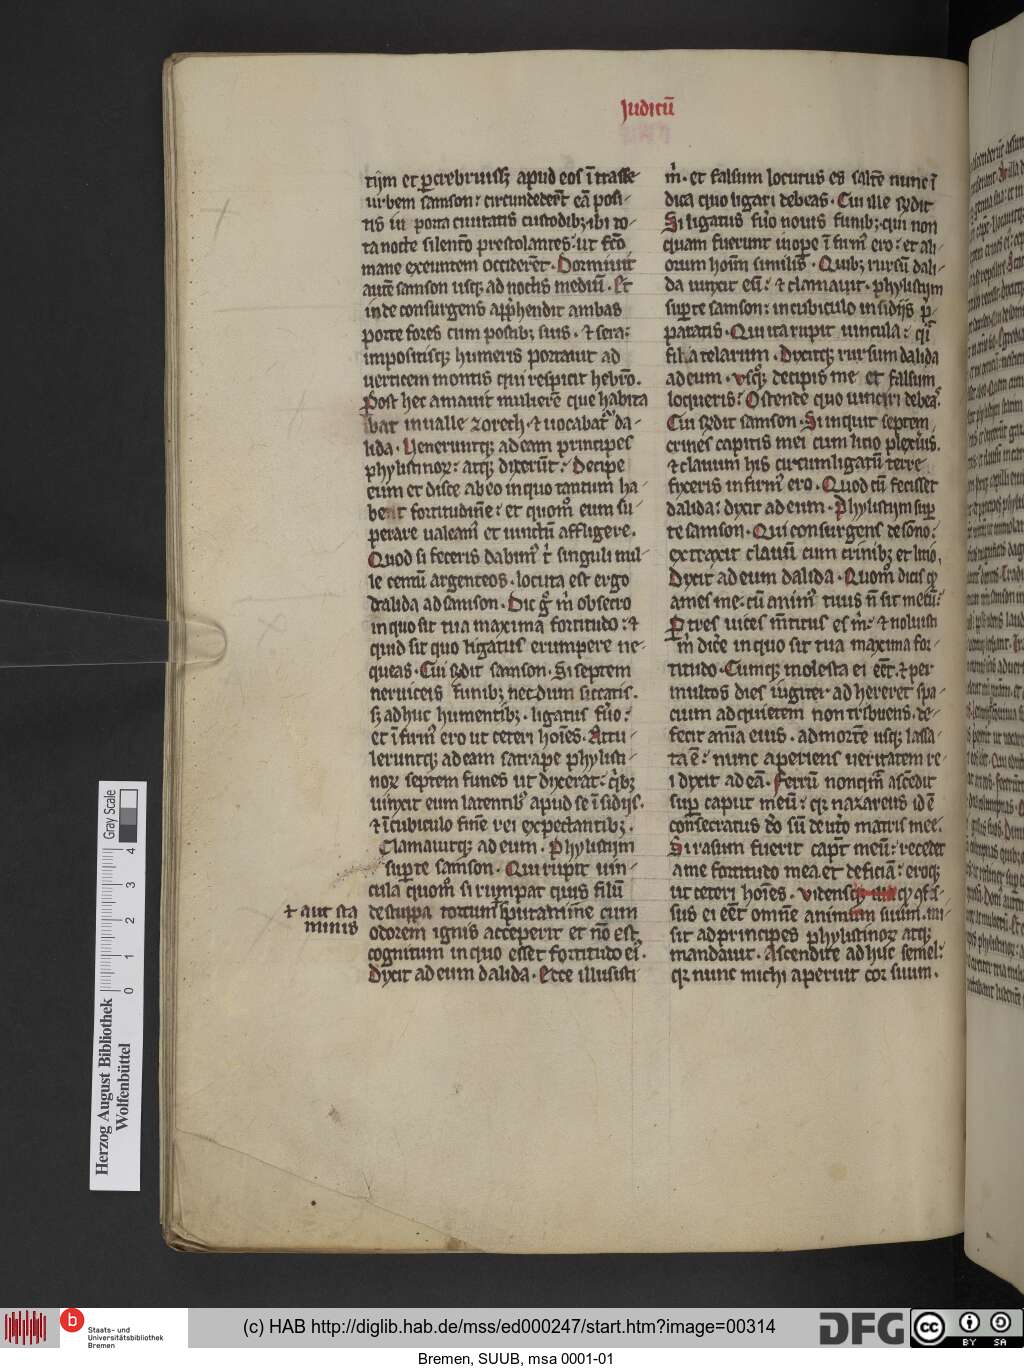 Judicū
tijm et ꝑcrebruissꝫ apud eos ītrasse
urbem samson: circundederūt eā posi-
tis in porta ciuitatis custodibꝫ: ibi to-
ta nocte silentio prestolantes: ut fco
mane exeuntem occiderēt. Dormiuit
autē samson usqꝫ ad noctis mediū. Et
inde consurgens apphendit ambas
porte fores cum postibꝫ suis. ⁊ sera:
impositisqꝫ humeris portauit ad
uerticem montis qui respicit hebro.
Post hec amauit mulierē que habita
bat in ualle zorech. ⁊ uocabat da-
lida. Uenerunt qꝫ ad eam principes
phylistinoꝝ: atqꝫ dixerūt: Decipe
eum et disce ab eo in quo tantum ha-
beat fortitudinē: et quom eum su-
perare ualeam et uinctū affligere.
Quod si feceris dabim t singuli mil-
le centū argenteos. locuta est ergo
dalida ad samson. Dic g m obsecro
in quo sit tua maxima fortitudo: ⁊
quid sit quo ligatus erumpere ne-
queas. Cui rndit samson. Si septem
neruiceis funibꝫ necdum siccatis.
sꝫ adhuc humentibꝫ. ligatus fuo:
et īfirm ero ut ceteri hoies. Attu-
leruntqꝫ ad eam satrape phylisti-
noꝝ septem funes ut dixerat: qbꝫ
uinxit eum latentibꝰ apud se īsidijs.
⁊ ī cubiculo fine rei expectantibꝫ.
Clamauitqꝫ ad eum. Phylistijm
supte samson. Qui rupit uin-
cula quom si rumpat quis filū
de stuppa tortum sputamine cum
odorem ignis acceperit et nō est
cognitum in quo esset fortitudo ei.
Dixit ad eum dalida. Ecce illusisti
ł aut sta
minis
m. et falsum locutus es saltē nunc ī
dica quo ligari debeas. Cui ille rndit
Si ligatus fuo nouis funibꝫ qui non
quam fuerunt ī ope: īfirm ero: et ali-
orum hoīm similis. Quibꝫ rursū dali-
da uinxit eū: ⁊ clamauit. phylistijm
supte samson: in cubiculo insidijs p-
paratis. Qui ita rupit uincula: qi
fila telarum. Dixitqꝫ rursum dalida
ad eum. usqꝫ decipis me et falsum
loqueris: Ostende quo uinciri debeas.
Cui rndit samson. Si inquit septem
crines capitis mei cum licio plexuis.
⁊ clauum his circumligatū terre
fixeris infirm ero. Quod cū fecisset
dalida: dixit ad eum. Phylistijm sup
te samson. Qui consurgens de sōno:
extraxit clauū cum crinibꝫ et licio.
Dixit ad eum dalida. Quom dicis qꝫ
ames me: cū anim tuus n̄ sit mecū:
P tres uices mtitus es m: ⁊ noluisti
m dicē in quo sit tua maxima for-
titudo. Cumqꝫ molesta ei eēt. ⁊ per
multos dies iugiter ad hereret spa-
cium ad quietem non tribuens. de-
fecit anīa eius. ad mortē usqꝫ lassa-
ta ē: nunc aperiens ueritatem re-
i dixit ad eā. Ferrū nonqm ascēdit
sup caput meū: qꝛ nazareus id ē
consecratus dō sū de utō matris mee.
Si rasum fuerit capt meū: recedet
a me fortitudo mea et deficiā: eroqꝫ
ut ceteri hoīes. Uidensqꝫ illa qꝫ ꝯfes-
sus ei eēt omnē animum suum. mi-
sit ad principes phylistinoꝝ atqꝫ
mandauit. Ascendite adhuc semel:
qꝛ nunc michi aperuit cor suum.
Gray Scale
4
3
2
1
0
Herzog August Bibliothek
Wolfenbüttel
b
Staats- und
Universitätsbibliothek
Bremen
(c) HAB http://diglib.hab.de/mss/ed000247/start.htm?image=00314
DFG
cc
BY SA
Bremen, SUUB, msa 0001-01